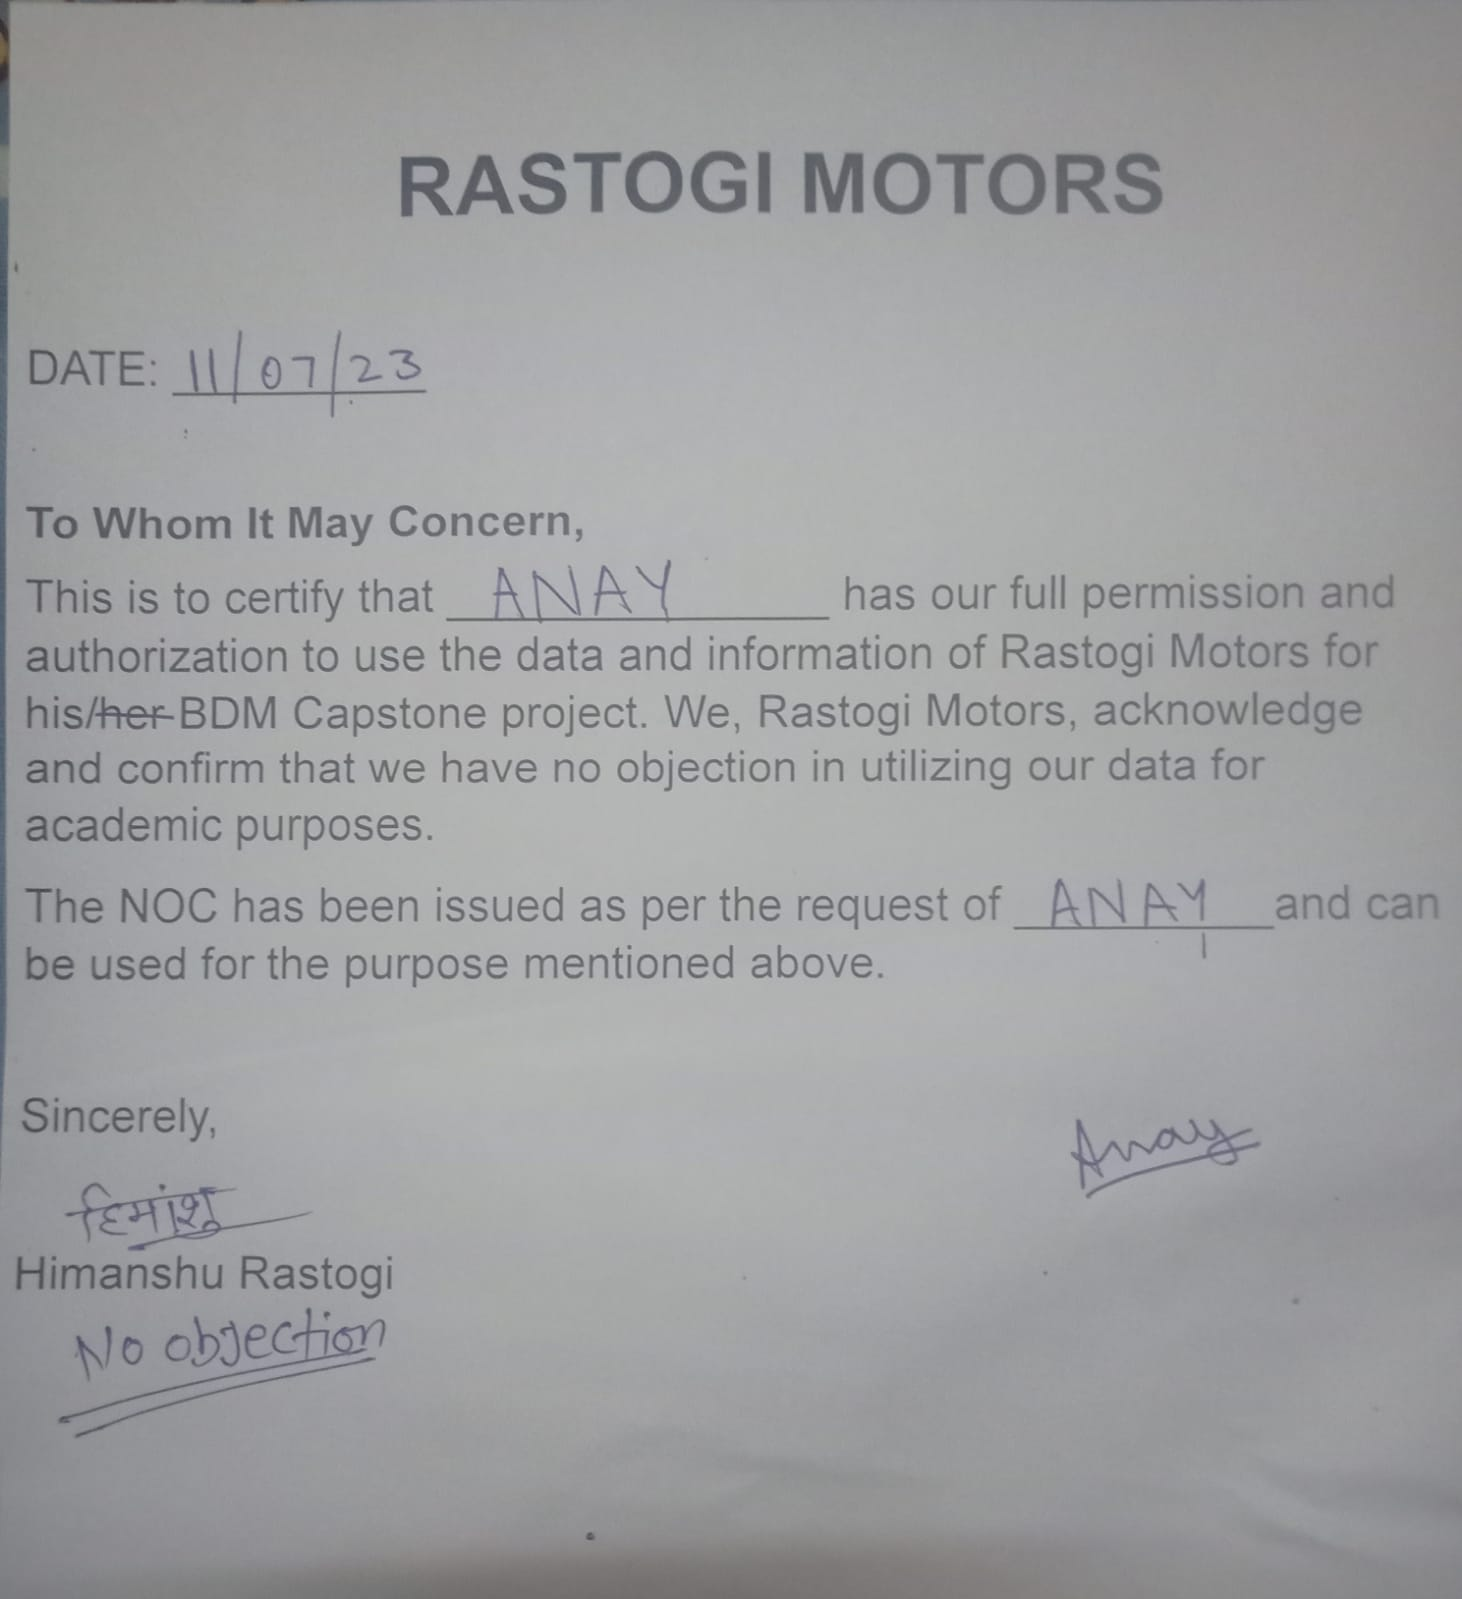 RASTOGI MOTORS
DATE: 11/07/23
To Whom It May Concern,
This is to certify that ANAY has our full permission and
authorization to use the data and information of Rastogi Motors for
his/her BDM Capstone project. We, Rastogi Motors, acknowledge
and confirm that we have no objection in utilizing our data for
academic purposes.
The NOC has been issued as per the request of ANAY and can
be used for the purpose mentioned above.
Sincerely,
Anay
हिमांशु
Himanshu Rastogi
No objection